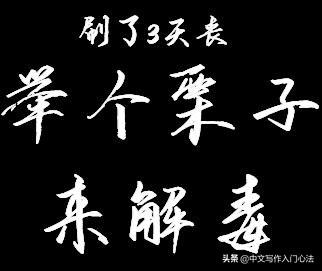 刷了3天丧
举个栗子
来解毒
头条 @中文写作入门心法